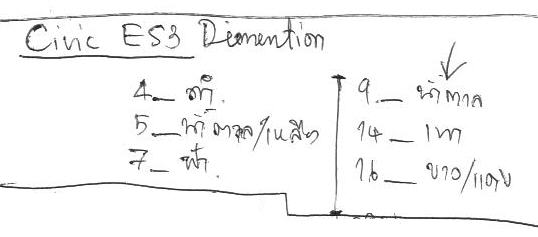 Civic ES3 Diemention
4_ ดำ.
5_ น้ำตาล/เหลือง
7_ ฟ้า.
9._ น้ำตาล
14_ เทา
16_ ขาว/แดง